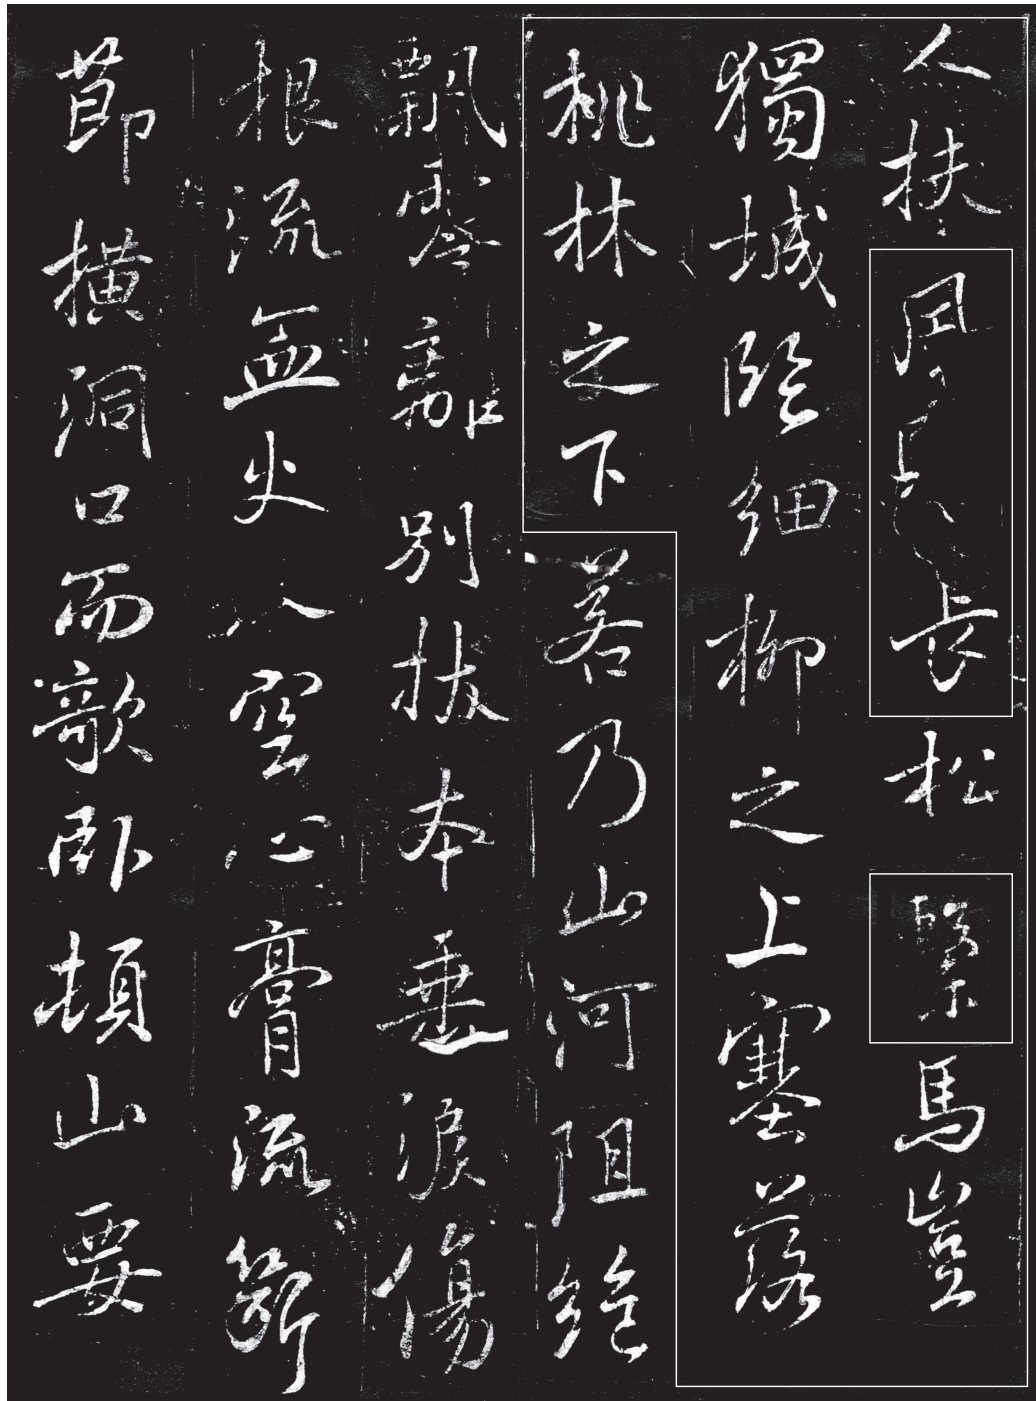 人扶風長松繫馬豈
獨城臨細柳之上塞落
桃林之下若乃山河阻絕
飄零離別拔本垂淚傷
根流血火入空心膏流斷
節橫洞口而欹臥頓山要